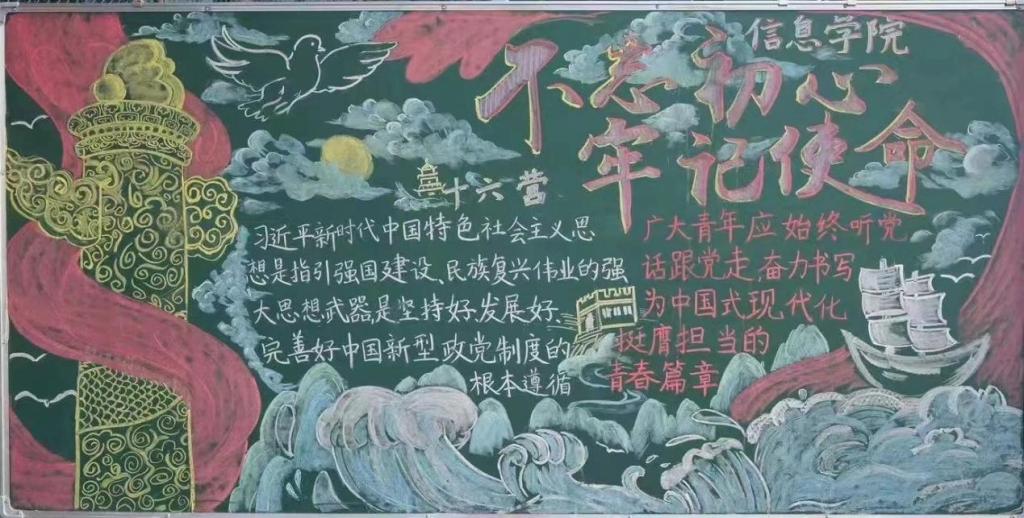 信息学院
不忘初心
牢记使命
十六营
习近平新时代中国特色社会主义思
想是指引强国建设、民族复兴伟业的强
大思想武器,是坚持好、发展好、
完善好中国新型政党制度的
根本遵循
广大青年应始终听党
话跟党走,奋力书写
为中国式现代化
挺膺担当的
青春篇章